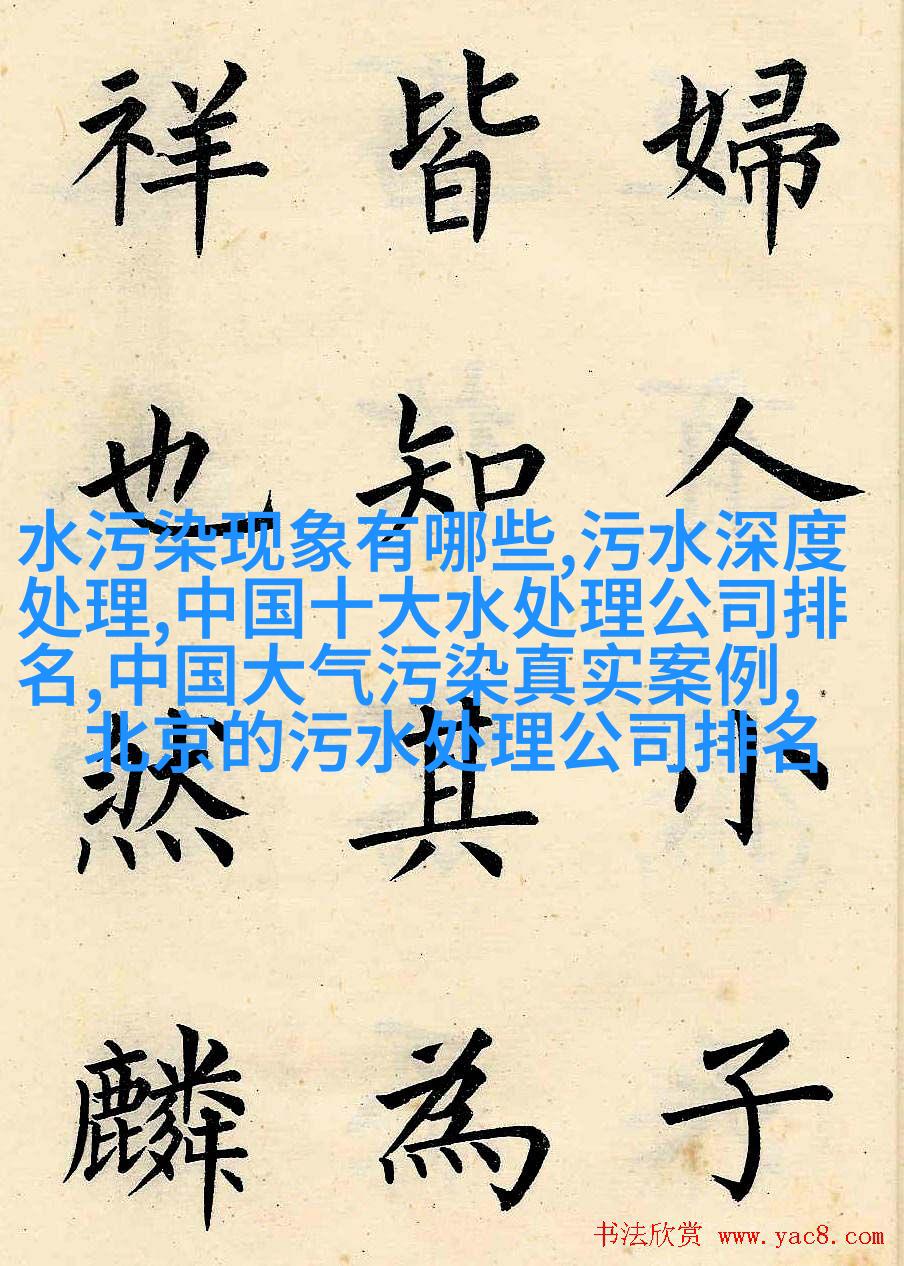 婦人小子
皆知其為
祥也然麟
水污染现象有哪些,污水深度
处理,中国十大水处理公司排
名,中国大气污染真实案例,
北京的污水处理公司排名
书法欣赏 www.yac8.com